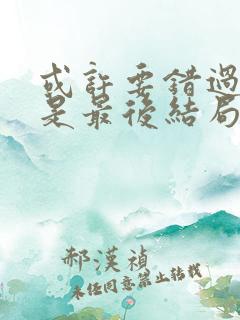 或許要錯過
是最後結局
郝漢禎
未经同意禁止转载